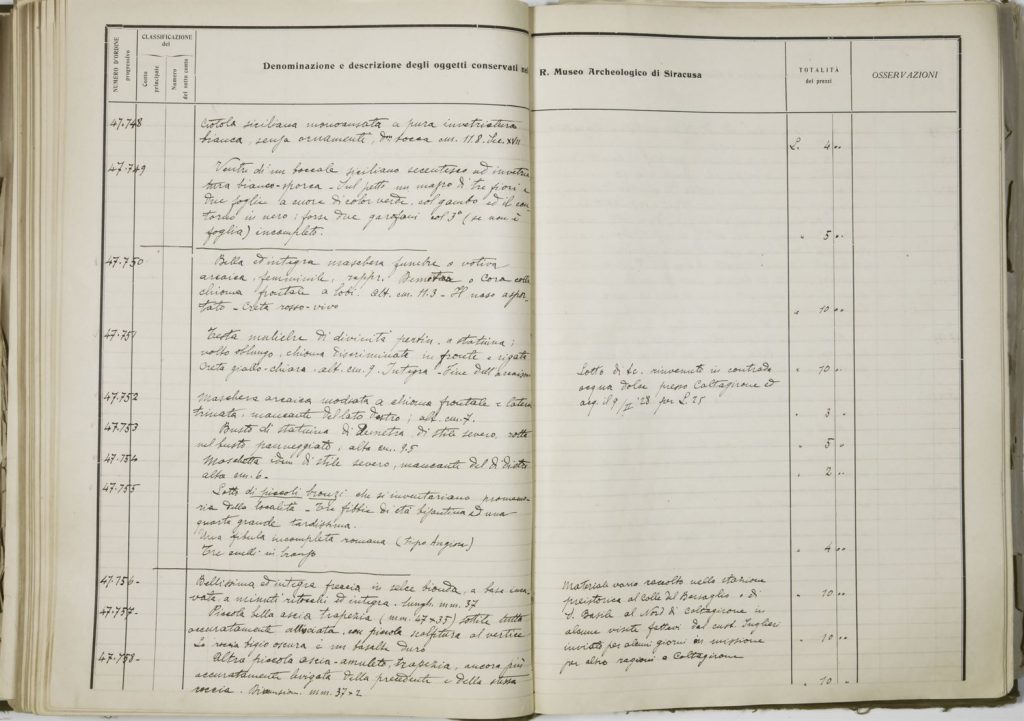 NUMERO D'ORDINE progressivo
CLASSIFICAZIONE del
Conto principale
Numero del sotto conto
Denominazione e descrizione degli oggetti conservati nel R. Museo Archeologico di Siracusa
TOTALITÀ dei prezzi
OSSERVAZIONI
47.748
Ciotola siciliana monoansata a pura invetriatura
bianca, senza ornamenti, bocca cm. 11.8. Sec. XVII
L. 4 ..
47.749
Ventre di un boccale siciliano secentesco ad invetria
tura bianco-sporca - Sul petto un mazzo di tre fiori e
due foglie a cuore di color verde, col gambo ed il con
torno in nero; forse due garofani col 3° (se non è
foglia) incompleto.
" 5 ..
47.750
Bella ed integra maschera funebre o votiva
arcaica, femminile, rappr. Demetra o Cora colla
chioma frontale a lobi. alt. cm. 11.3 - Il naso aspor
tato - Creta rosso-vivo
" 10 ..
47.751
Testa muliebre di divinità, a statuina;
volto oblungo, chioma discriminata in fronte e rigata
Creta giallo-chiara. alt. cm. 9. Integra. Fine dell'arcaismo
Lotto di tc. rinvenuto in contrada
acqua dolce presso Caltagirone ed
acq. il 9/II '28 per L. 25
" 10 ..
47.752
Maschera arcaica modiata a chioma frontale e latera
mancante del lato destro; alt. cm. 7.
" 3 ..
47.753
Busto di statuina di Demetra, di stile severo, rotta
nel busto panneggiato; alta cm. 9.5
" 5 ..
47.754
Maschetta idem di stile severo, mancante del di dietro
alta cm. 6 -
" 2 ..
47.755
Lotto di piccoli bronzi che si inventariano
della località - Tre fibbie di età bizantina ed una
quarta grande tardissima.
Una fibula incompleta romana (tipo Augiova)
Tre anelli in bronzo
" 4 ..
47.756 -
Bellissima ed integra freccia in selce bionda, a base incur
vata a minuti ritocchi ed integra. lungh. mm. 37
Materiali vario raccolto nella stazione
preistorica al colle del Bersaglio e di
S. Basile al Nord di Caltagirone in
alcune visite fattevi dal cust.
inviato per alcuni giorni in missione
per altro ragioni a Caltagirone
" 10 ..
47.757 -
Piccola bella ascia trapezia (mm. 47 x 35) sottile tutta
accuratamente, con piccola scalptura al vertice
La roccia bigio oscura è un basalto duro
" 10 ..
47.758 -
Altra piccola ascia-amuleto, trapezia, ancora più
accuratamente levigata della precedente e della stessa
roccia. Dimension. mm. 37 x 2
" 10 ..